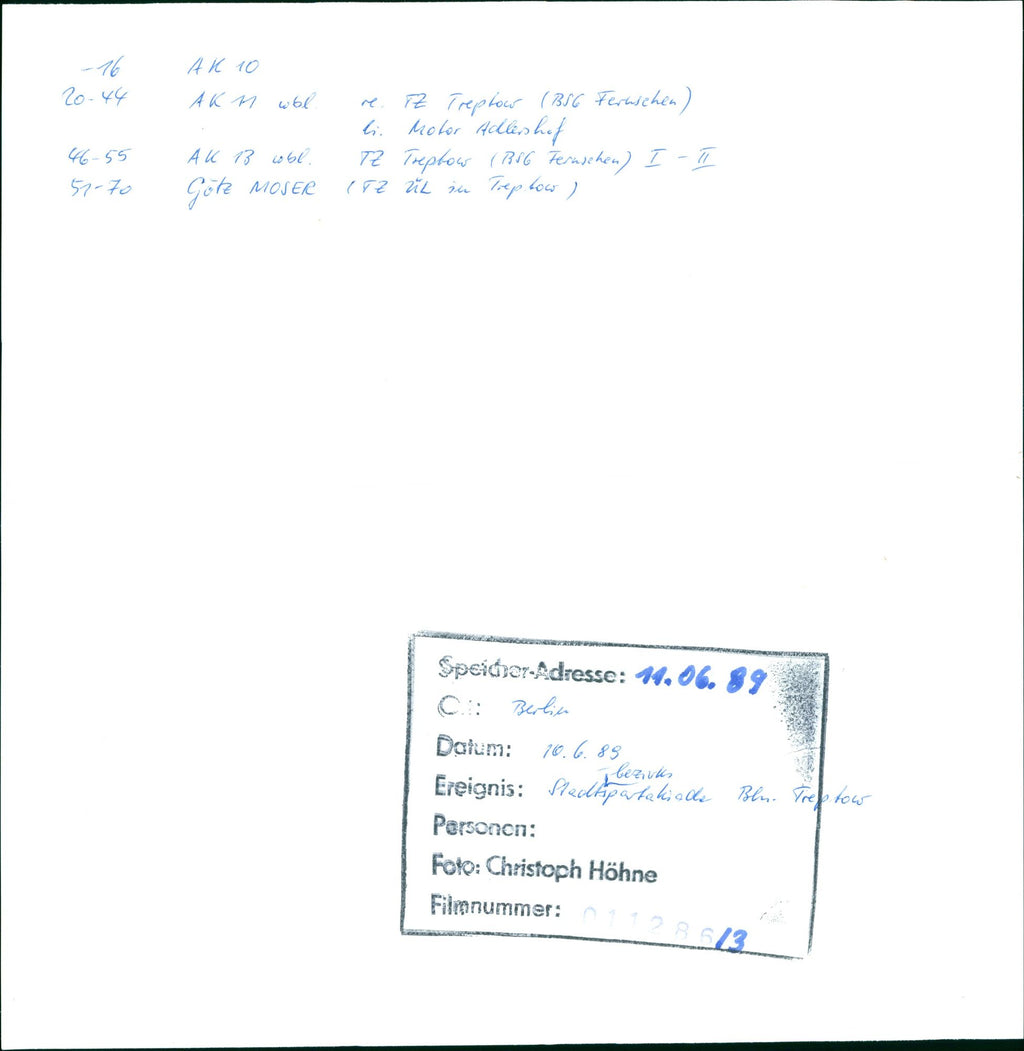 -16 AK 10
20-44 AK 11 wbl re. TZ Treptow (BSG Fernsehen)
li. Motor Adlershof
46-55 AK 13 wbl. TZ Treptow (BSG Fernsehen) I - II
51-70 Götz MOSER (TZ ÜL in Treptow)
Speicher-Adresse: 11.06.89
O : Berlin
Datum: 10.6.89
bezirks
Ereignis: Stadtspartakiade Bln. Treptow
Personen:
Foto: Christoph Höhne
Filmnummer: 011286/3